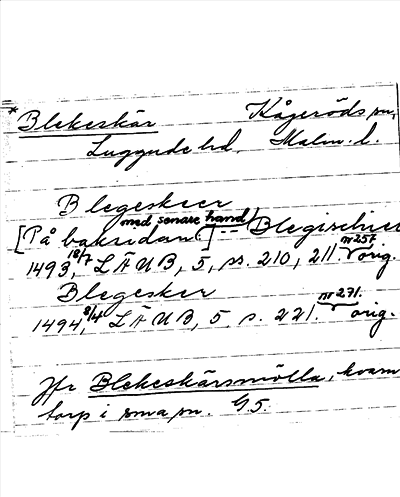 * Blekeskär Kågeröds sn,
Luggude hd. Malm. l.
Blegeskeer
[På baksidan med senare hand:] -- Blegischier
1493, 18/7 LÄUB, 5, ss. 210, 211. nr 257 orig.
Blegesker
1494, 8/4 LÄUB, 5, s. 221. nr 271. orig.
Jfr Blekeskärsmölla, kvarn
torp i sma sn. G5.